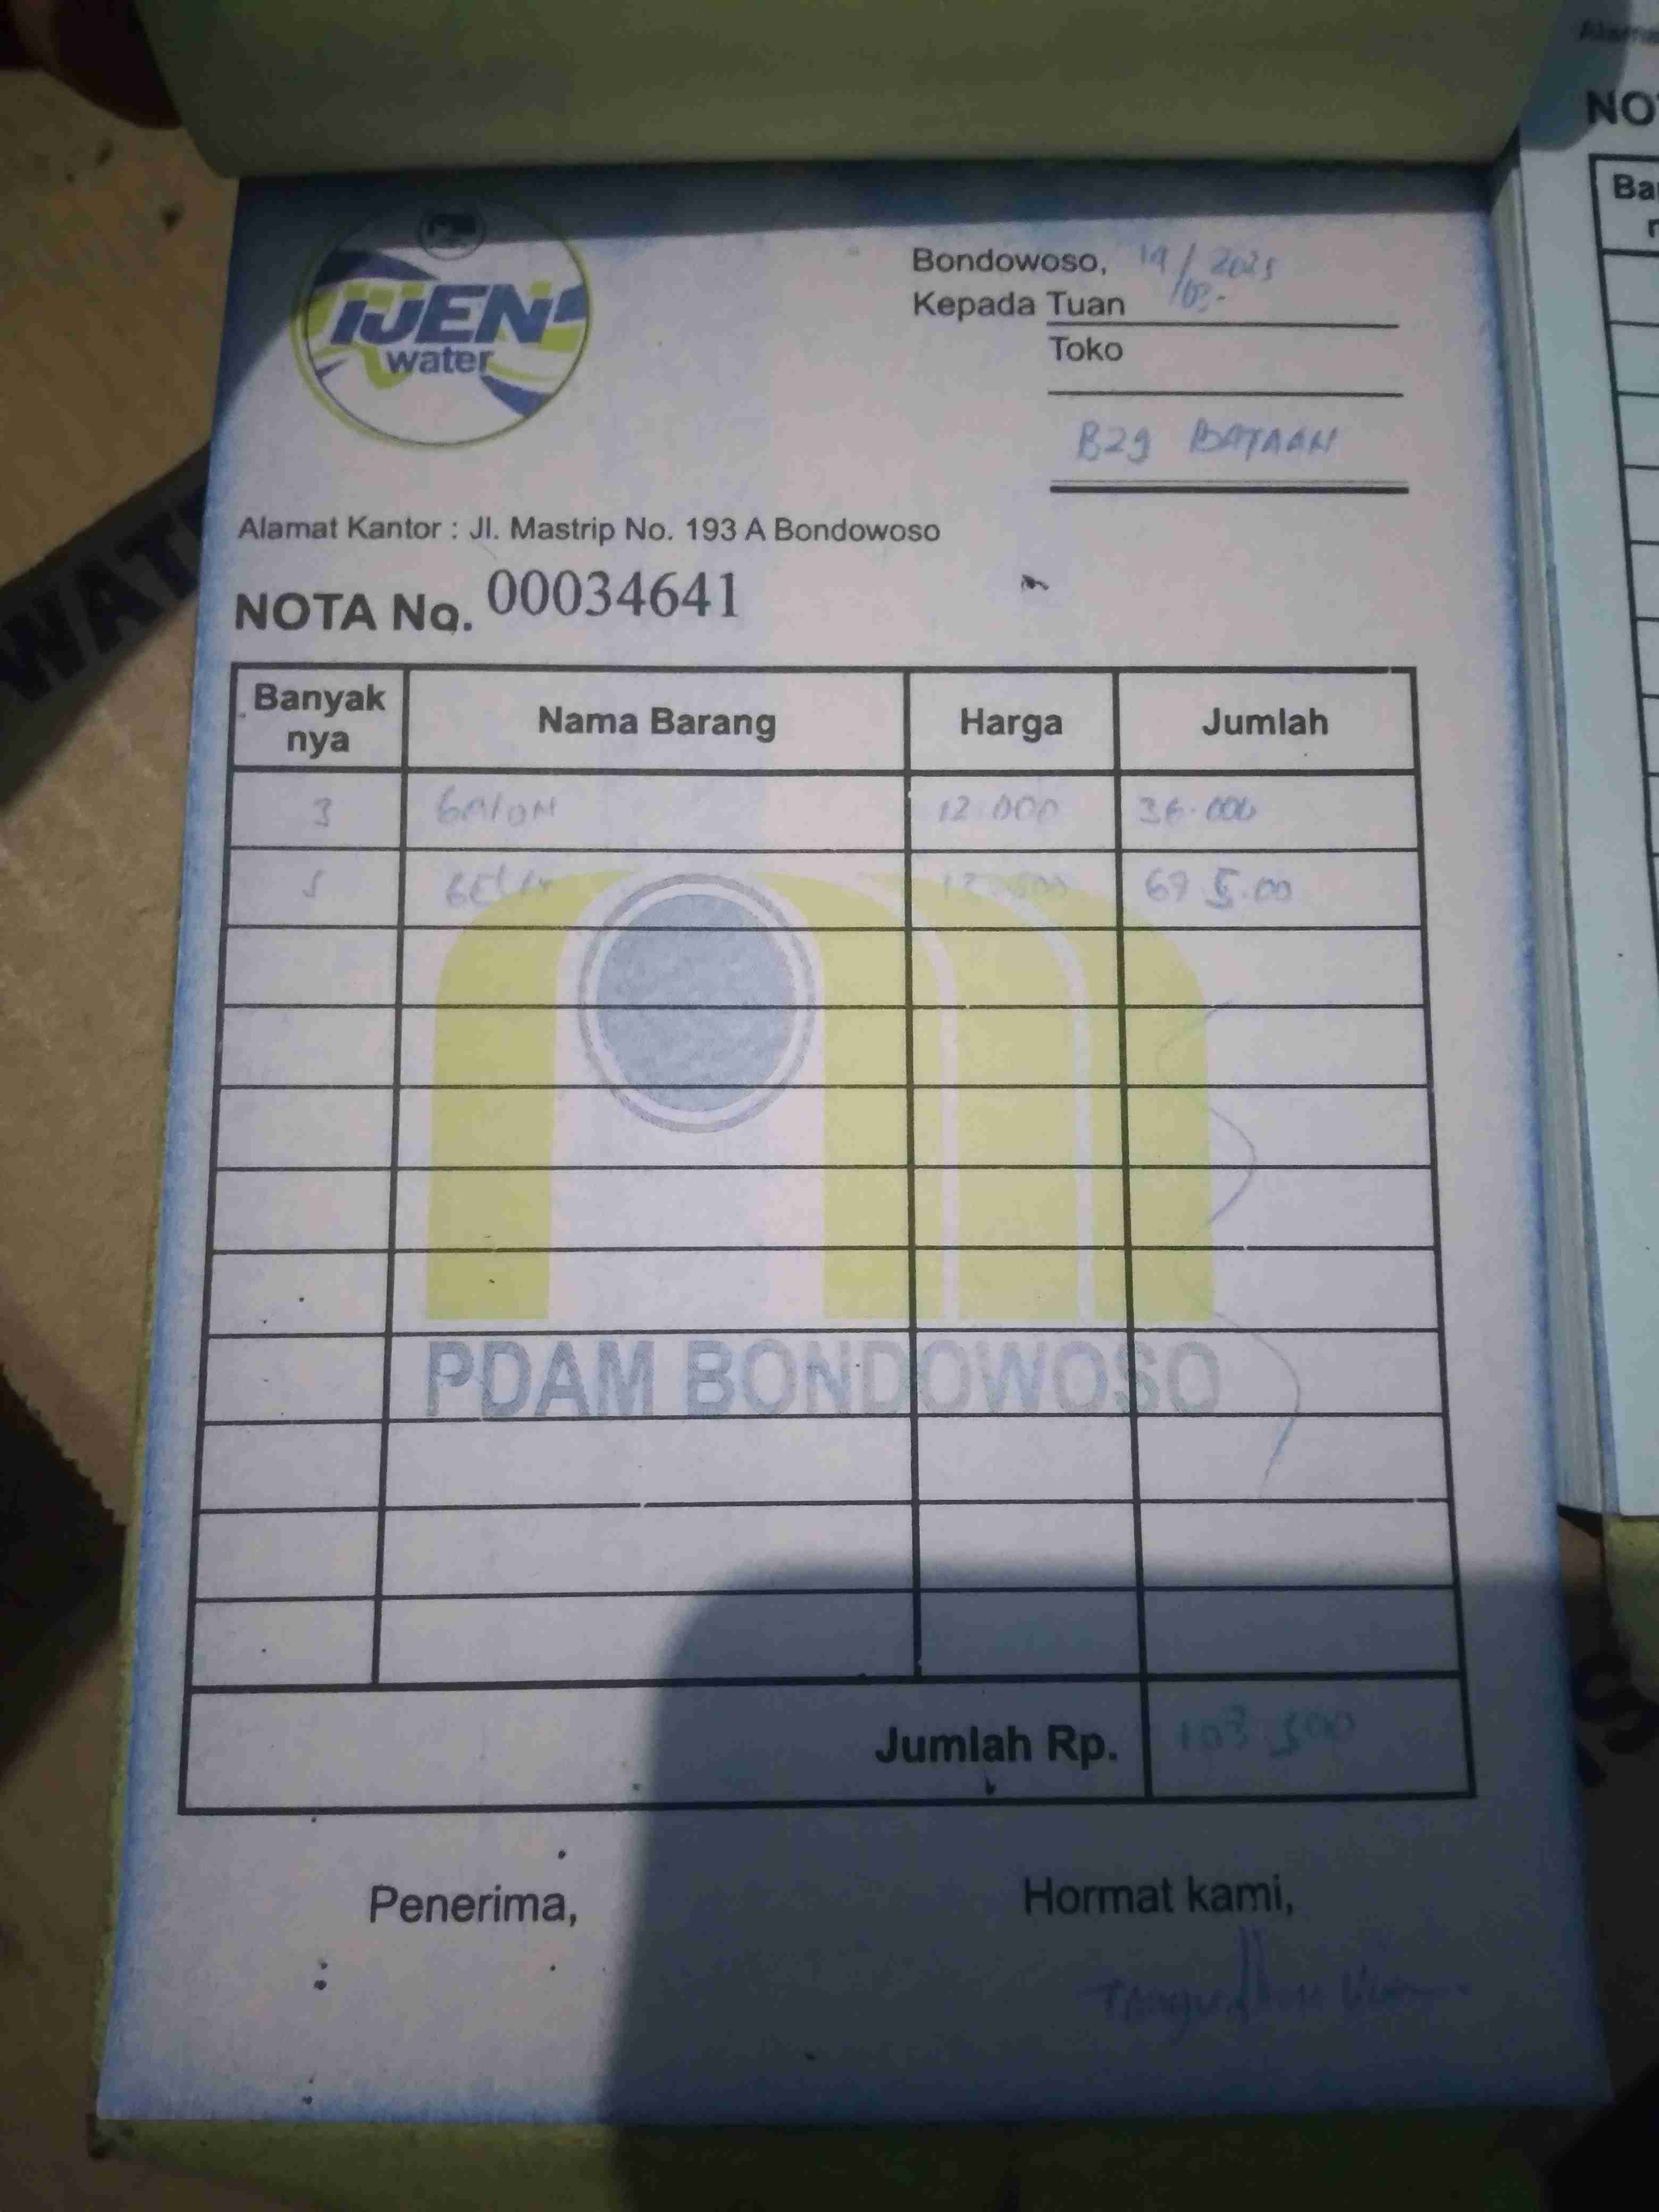 IJEN
water
Bondowoso, 19/03-2025
Kepada Tuan
Toko
B29 BATAAN
Alamat Kantor : Jl. Mastrip No. 193 A Bondowoso
NOTA No. 00034641
Banyak nya Nama Barang Harga Jumlah
3 GALON 12.000 36.000
5 67 5.00
PDAM BONDOWOSO
Jumlah Rp. 103 500
Penerima, Hormat kami,